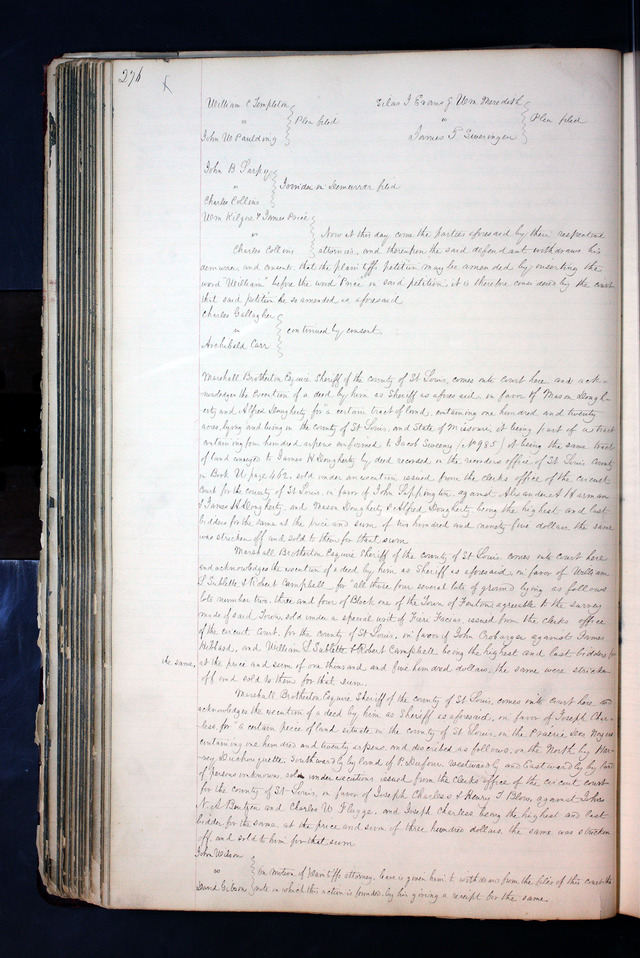 276
William C Templeton
vs Plea filed
John W Pauldonig
Silas J Evans & Wm Meredith
vs Plea filed
James T Swearingen
John B Sarpy
vs Joinder in Demurrer filed
Charles Collins
Wm Kilgore & James Price
vs Now at this day come the parties aforesaid by their respective
Charles Collins attornies, and thereupon the said defendant withdraws his
demurrer, and consents that the plaintiffs petition may be amended by inserting the
word "William" before the word "Price" in said petition, it is therefore considered by the court
that said petition be so amended as aforesaid
Charles Gallagher
vs continued by consent
Archibald Carr
Marshall Brotherton Esquire Sheriff of the county of St Louis, comes into court here and ack-
nowledges the execution of a deed by him as Sheriff as aforesaid, in favor of Mason Dough-
erty and Alfred Dougherty for "a certain tract of land, containing one hundred and twenty
acres, lying and being in the county of St Louis, and State of Missouri, it being part of a tract
containing four hundred arpens confirmed to Jacob Sweney (No 985) it being the same tract
of land conveyed to James H Dougherty by deed recorded in the recorders office of St Louis County
in Book U page 462, sold under an execution issued from the clerks office of the circuit
court for the county of St Louis, in favor of John Sappington, against Alexander A Harman
& James H Dougherty, and Mason Dougherty & Alfred Dougherty being the highest and last
bidders for the same at the price and sum of six hundred and ninety five dollars the same
was stricken off and sold to them for that sum
Marshall Brotherton Esquire Sheriff of the county of St Louis comes into court here
and acknowledges the execution of a deed by him as Sheriff as aforesaid, in favor of William
L Sublette & Robert Campbell for "all those four several lots of ground lying as follows
lots number two, three and four of Block one of the Town of Fenton, agreeable to the survey
made of said Town, sold under a special writ of Fiere Facias, issued from the clerks office
of the circuit court for the county of St Louis, in favor of John against James
Hibbard, and William L Sublette & Robert Campbell being the highest and last bidders for
the same, at the price and sum of one thousand and five hundred dollars, the same were stricken
off and sold to them for that sum.
Marshall Brotherton Esquire Sheriff of the county of St Louis, comes into court here and
acknowledges the execution of a deed by him as Sheriff as aforesaid, in favor of Joseph Char-
less, for "a certain peice of land situate in the county of St Louis, in the Prairie Des Noyers
containing one hundred and twenty arpens, and described as follows, on the North by
, Southwardly by land of P. Dufour westwardly and Eastwardly by land
of persons unknown sold under executions issued from the Clerks office of the circuit court
for the county of St Louis, in favor of Joseph Charless & Henry T Blow, against John
N. A Bentzen and Charles W Flugge, and Joseph Charless being the highest and last
bidder for the same, at the price and sum of three hundred dollars, the same was stricken
off and sold to him for that sum
John Wilson
vs On motion of plaintiffs attorney, leave is given him to withdraw from the files of this court the
David Gibson note on which this action is founded, by his giving a receipt for the same.